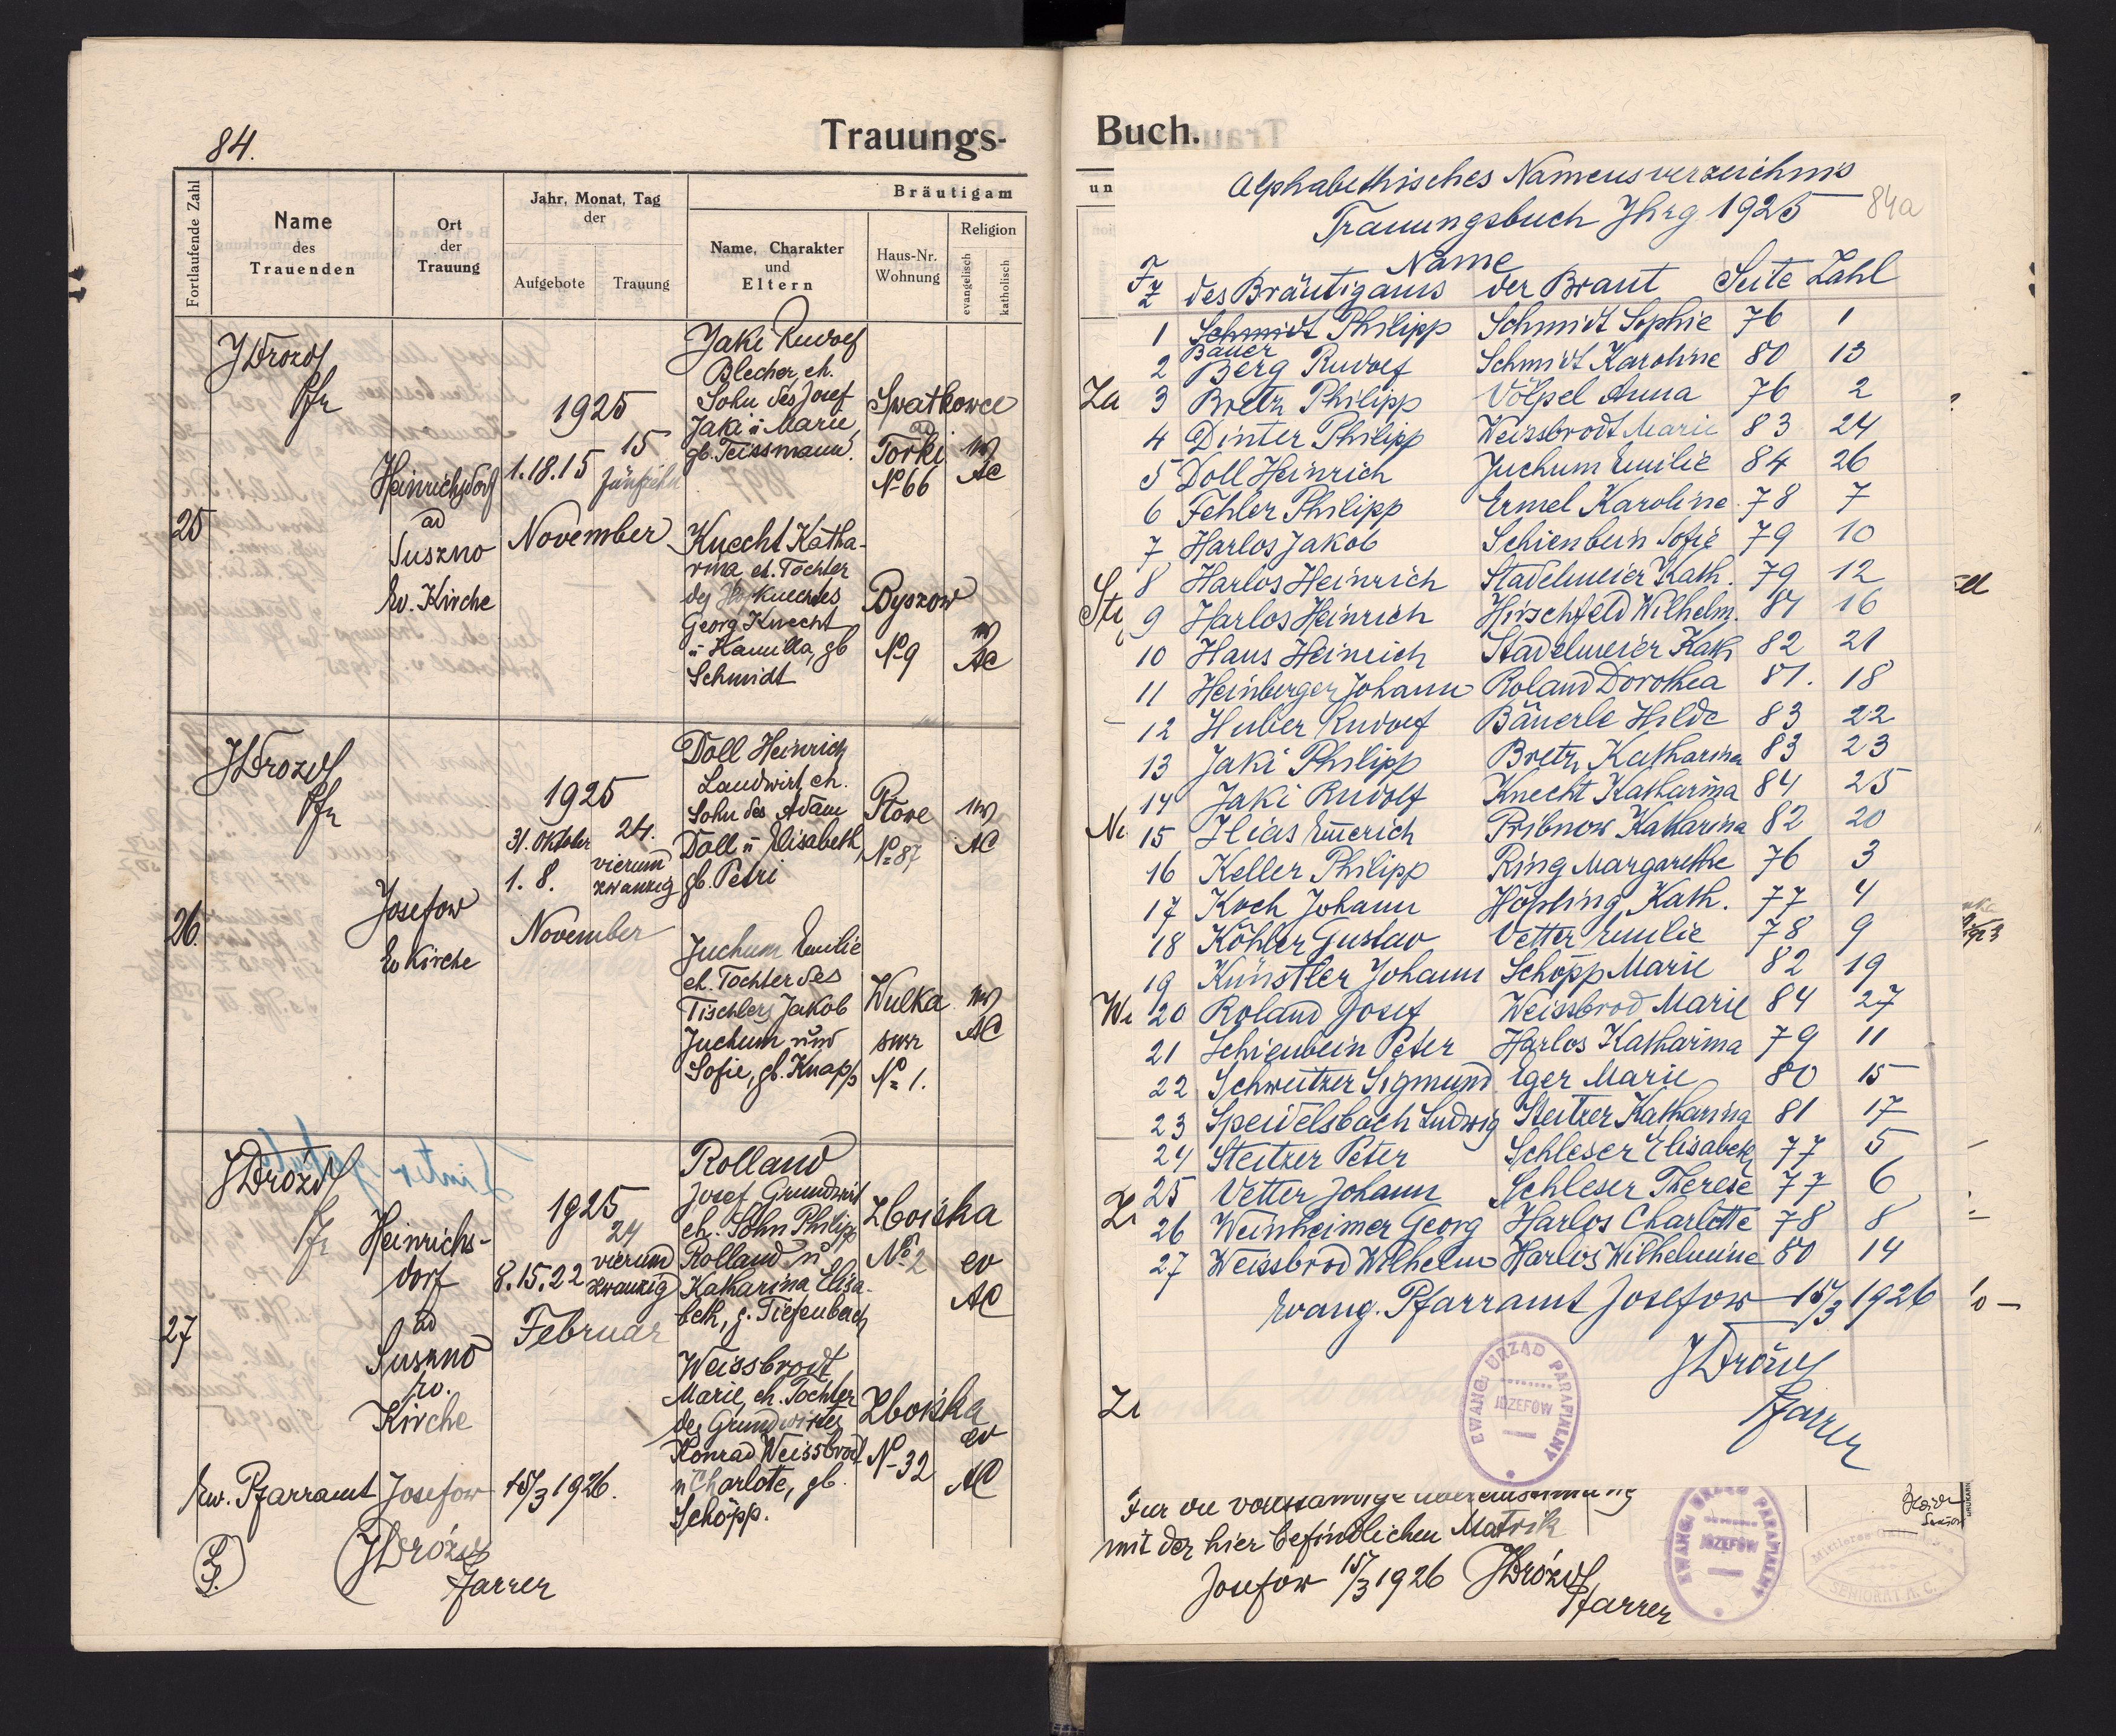 84.
Trauungs-
Fortlaufende Zahl
Name
des
Trauenden
Ort
der
Trauung
Jahr, Monat, Tag
der
Aufgebote
Trauung
Bräutigam
Name, Charakter
und
Eltern
Haus-Nr.
Wohnung
Religion
evangelisch
katholisch
25
JDrozd
Pfr
Heinrichsdorf
ad
Suszno
Ev. Kirche
1925
15
1.18.15 fünfzehn
November
Jaki Rudolf
Blecher, eh.
Sohn des Josef
Jaki u Marie,
gb. Teissmann.
Swatkowce
ad
Torki
№ 66
ev
AC
Knecht Katha-
rina eh. Tochter
des
Georg Knecht
u Kamilla, gb
Schmidt
Byszow
№ 9
ev
AC
26.
JDrozd
Pfr
Josefow
Ev Kirche
1925
31. Oktober 24.
1. 8. vierund
zwanzig
November
Doll Heinrich
Landwirt, eh.
Sohn des Adam
Doll u Elisabeth,
gb. Petri
№ 87
ev
AC
Juchum Emilie
eh. Tochter des
Tischlers Jakob
Juchum und
Sofie, gb. Knapp
Wulka
№ 1.
ev
AC
27
JDrozd
Pfr
Heinrichs-
dorf
ad
Suszno
ev.
Kirche
1925
24
8.15.22 vierund
zwanzig
Februar
Rolland
Josef, Grundwirt
eh. Sohn Philipp
Rolland u
Katharina Elisa-
beth, g. Tiefenbach
Zboiska
№ 2
ev
AC
Weissbrodt
Marie, eh. Tochter
des Grundwirtes
Konrad Weissbrodt
u Charlote, gb.
Schöpp.
Zboiska
№ 32
ev
AC
Ew. Pfarramt Josefow 15/3 1926.
JDrózd
Pfarrer
Buch.
un
Alphabethisches Namensverzeichnis
Trauungsbuch Jhrg 1925
84a
Name
Fz des Bräutigams der Braut Seite Zahl
1 Schmidt Philipp Schmidt Sophie 76 1
Bauer
2 Berg Rudolf Schmidt Karoline 80 13
3 Bretz Philipp Völpel Anna 76 2
4 Dinter Philipp Weissbrodt Marie 83 24
5 Doll Heinrich Juchum Emilie 84 26
6 Fehler Philipp Ermel Karoline 78 7
7 Harlos Jakob Schienbein Sofie 79 10
8 Harlos Heinrich Stadelmeier Kath. 79 12
9 Harlos Heinrich Hirschfeld Wilhelm. 81 16
10 Haus Heinrich Stadelmeier Kath 82 21
11 Heinberger Johann Roland Dorothea 81. 18
12 Huber Rudolf Bäuerle Hilde 83 22
13 Jaki Philipp Bretz Katharina 83 23
14 Jaki Rudolf Knecht Katharina 84 25
15 Ilias Emerich Pribnow Katharina 82 20
16 Keller Philipp Ring Margarethe 76 3
17 Koch Johann Höpling Kath. 77 4
18 Köhler Gustav Vetter Emilie 78 9
19 Künstler Johann Schöpp Marie 82 19
20 Roland Josef Weissbrod Marie 84 27
21 Schienbein Peter Harlos Katharina 79 11
22 Schweitzer Sigmund Eger Marie 80 15
23 Speidelsbach Ludwig Steitzer Katharina 81 17
24 Steitzer Peter Schleser Elisabeth 77 5
25 Vetter Johann Schleser Therese 77 6
26 Weinheimer Georg Harlos Charlotte 78 8
27 Weissbrod Wilhelm Harlos Wilhelmine 80 14
Evang. Pfarramt Josefow 15/3 1926
JDrózd
Pfarrer
EWANG. URZĄD PARAFIALNY
JÓZEFÓW
Für die vollständige Übereinstimmung
mit der hier befindlichen Matrik
Josefow 15/3 1926 JDrózd
Pfarrer
EWANG. URZĄD PARAFIALNY
JÓZEFÓW
SENIORAT A. C.